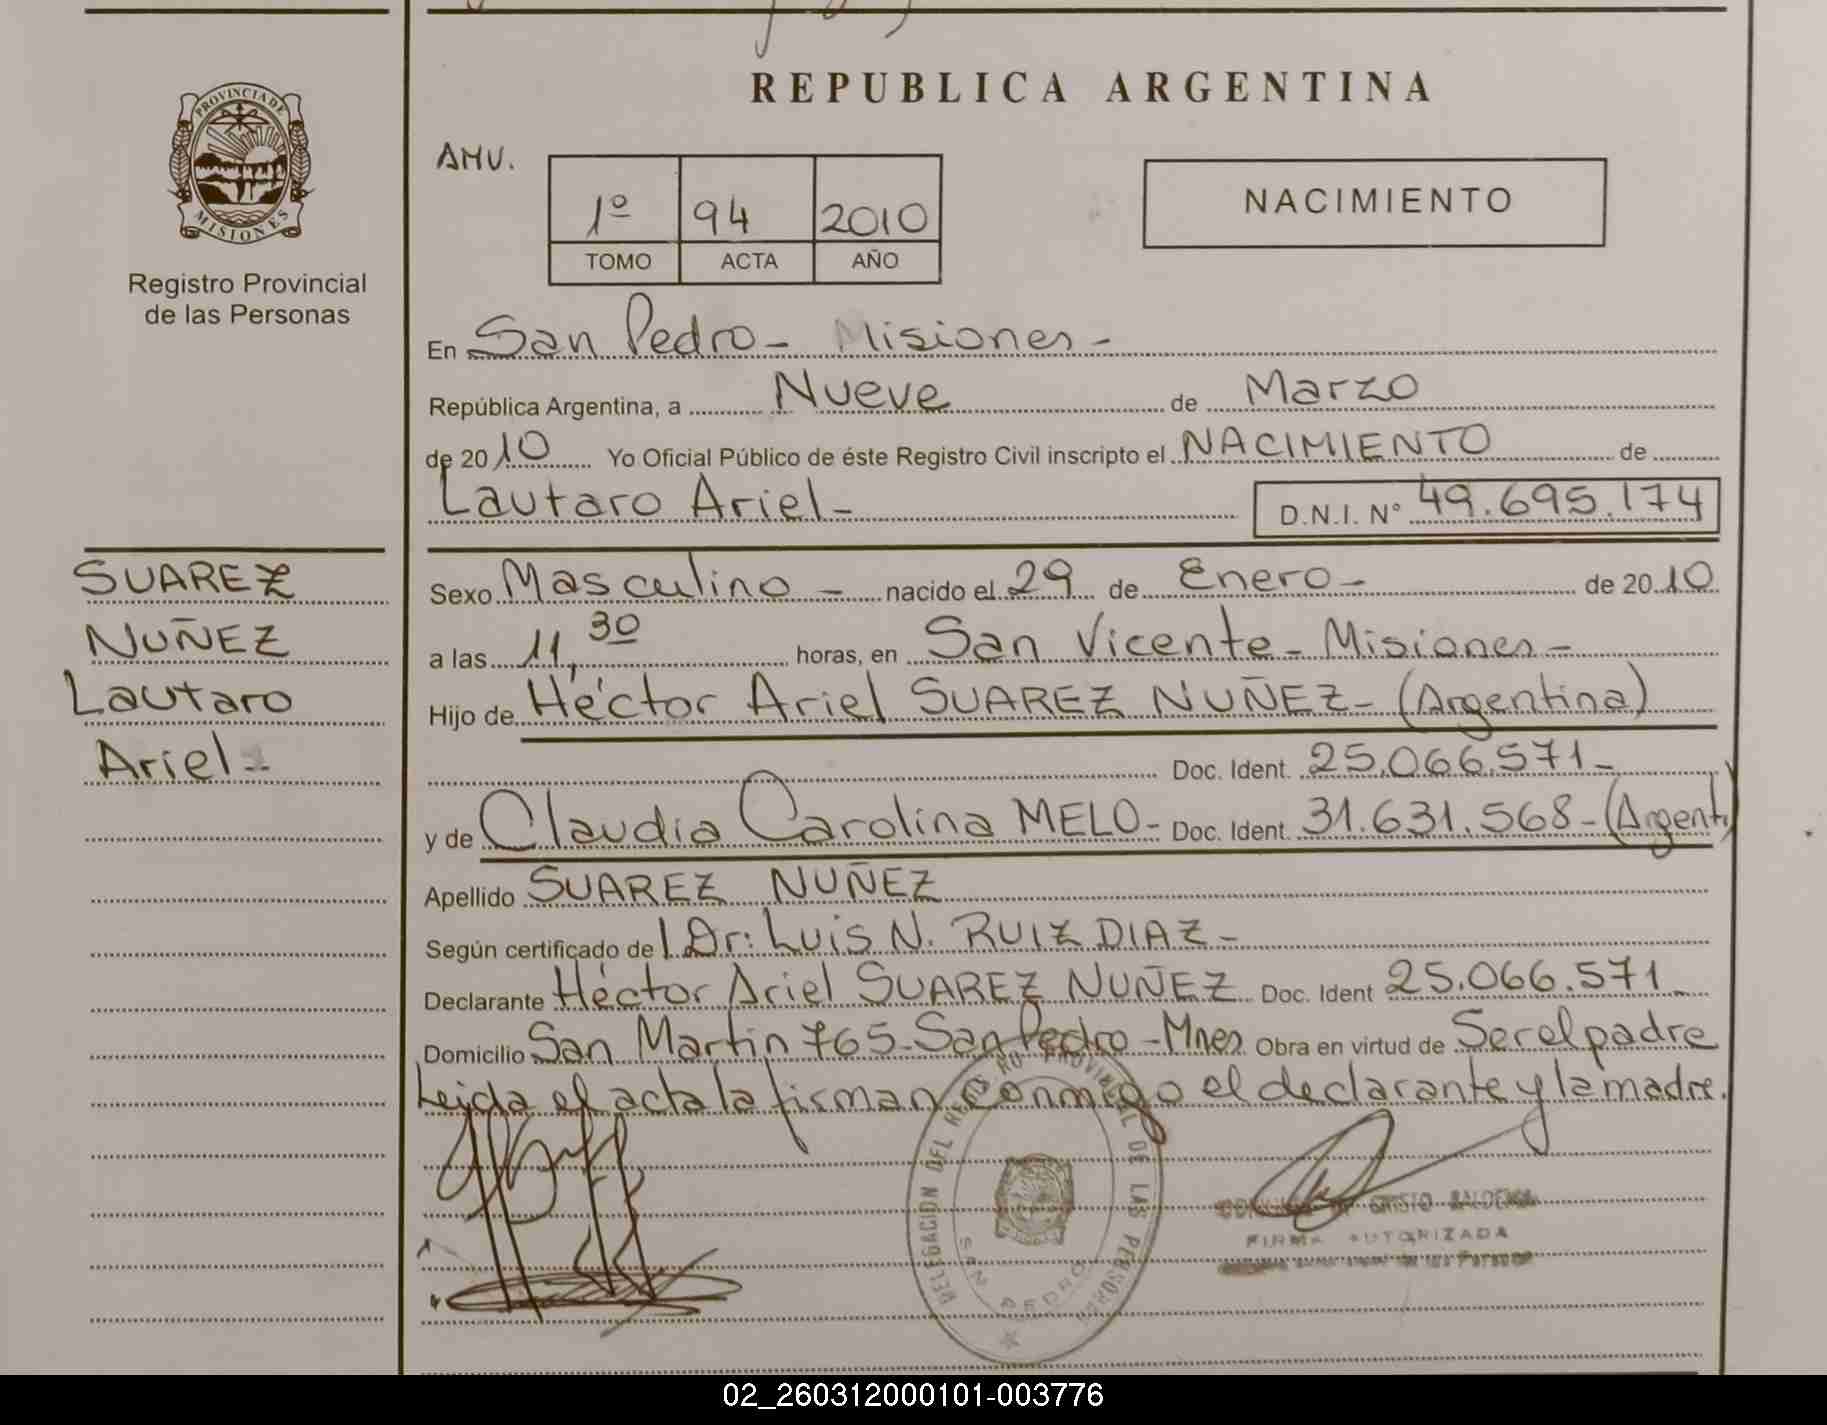 REPUBLICA ARGENTINA
PROVINCIA DE
MISIONES
Registro Provincial
de las Personas
AMU.
1º 94 2010
TOMO ACTA AÑO
NACIMIENTO
En San Pedro - Misiones -
República Argentina, a Nueve de Marzo
de 2010 Yo Oficial Público de éste Registro Civil inscripto el NACIMIENTO de
Lautaro Ariel - D.N.I. N° 49.695.174
SUAREZ
NUÑEZ
Lautaro
Ariel -
Sexo Masculino - nacido el 29 de Enero - de 2010
a las 11,30 horas, en San Vicente - Misiones -
Hijo de Héctor Ariel SUAREZ NUÑEZ - (Argentina)
Doc. Ident. 25.066.571 -
y de Claudia Carolina MELO - Doc. Ident. 31.631.568 - (Argent.)
Apellido SUAREZ NUÑEZ
Según certificado de Dr: Luis N. RUIZ DIAZ -
Declarante Héctor Ariel SUAREZ NUÑEZ Doc. Ident 25.066.571 -
Domicilio San Martin 765 - San Pedro - Mnes Obra en virtud de Ser el padre
Leida el acta la firman conmigo el declarante y la madre.
DELEGACION DEL REGISTRO PROVINCIAL DE LAS PERSONAS
SAN PEDRO
FIRMA AUTORIZADA
de las Personas
02_260312000101-003776